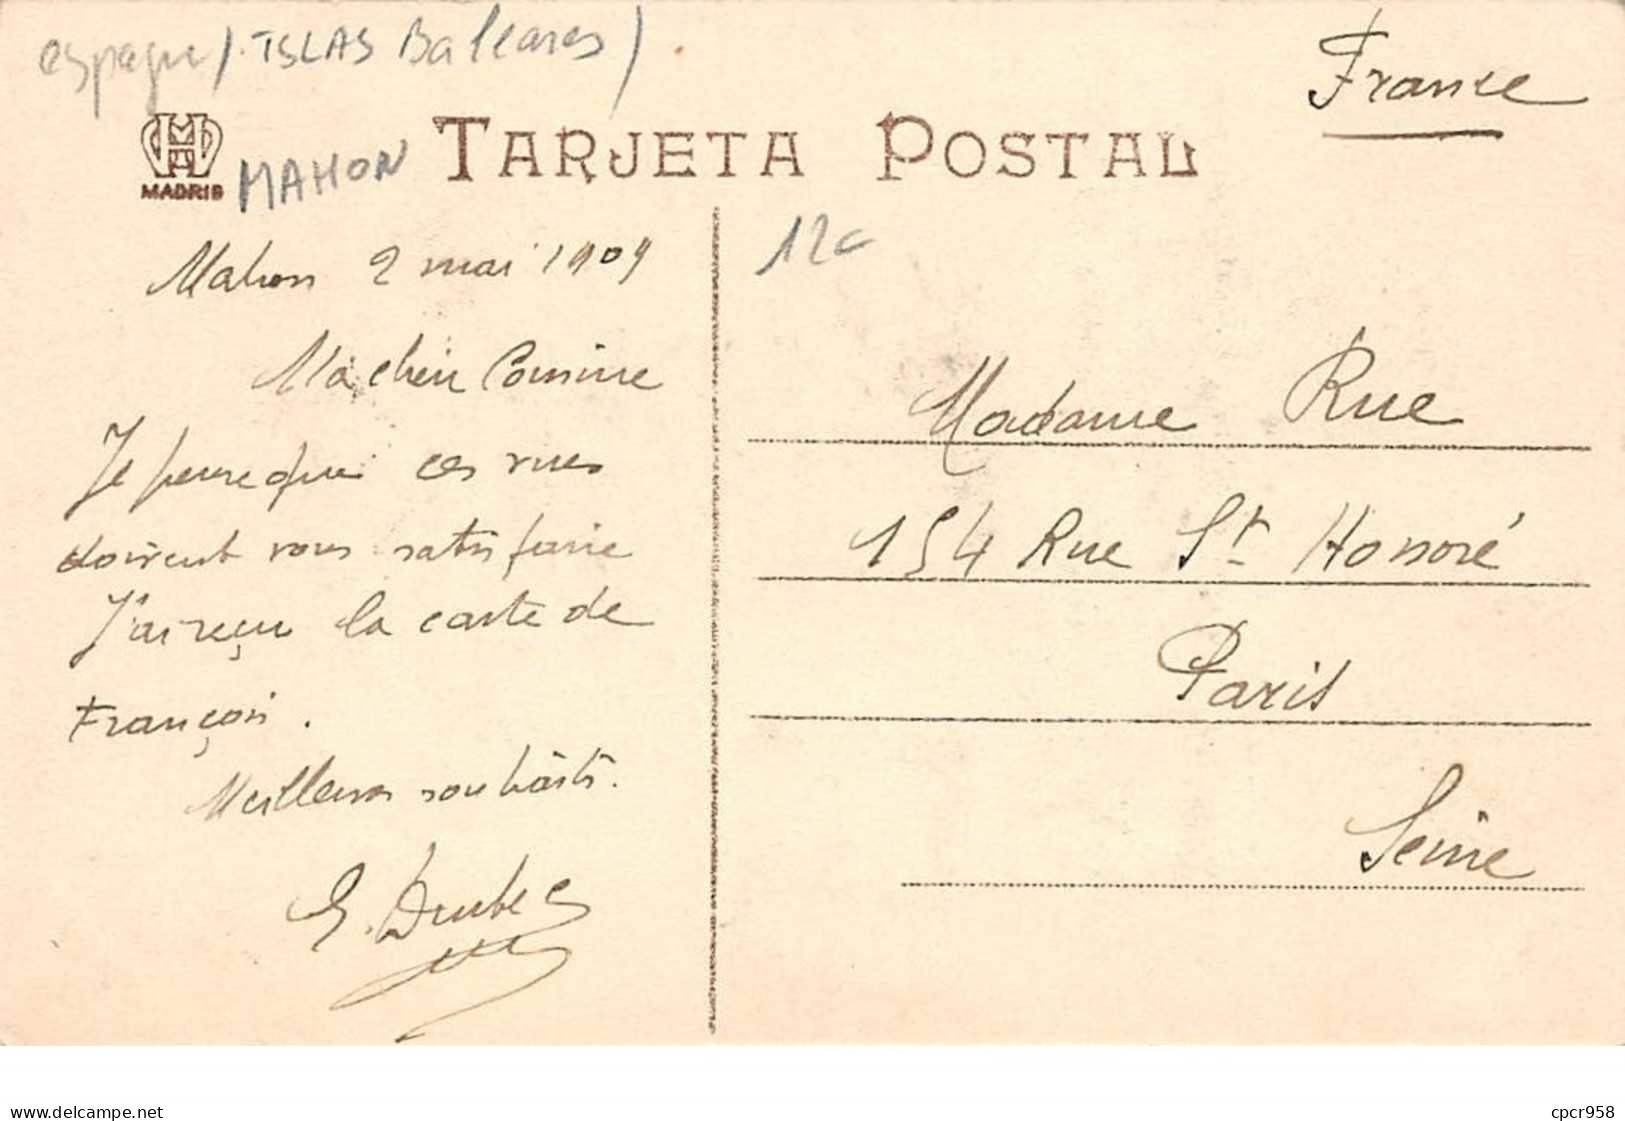 espagne / ISLAS Baleares /
France
HAM
MADRID
MAHON
TARJETA POSTAL
12c
Mahon 2 mai 1909
Ma chère Cousine
Je pense que ces vues
doivent vous satisfaire
J'ai reçu la carte de
François.
Meilleurs souhaits.
Madame Rue
154 Rue St Honoré
Paris
Seine
www.delcampe.net
cpcr958